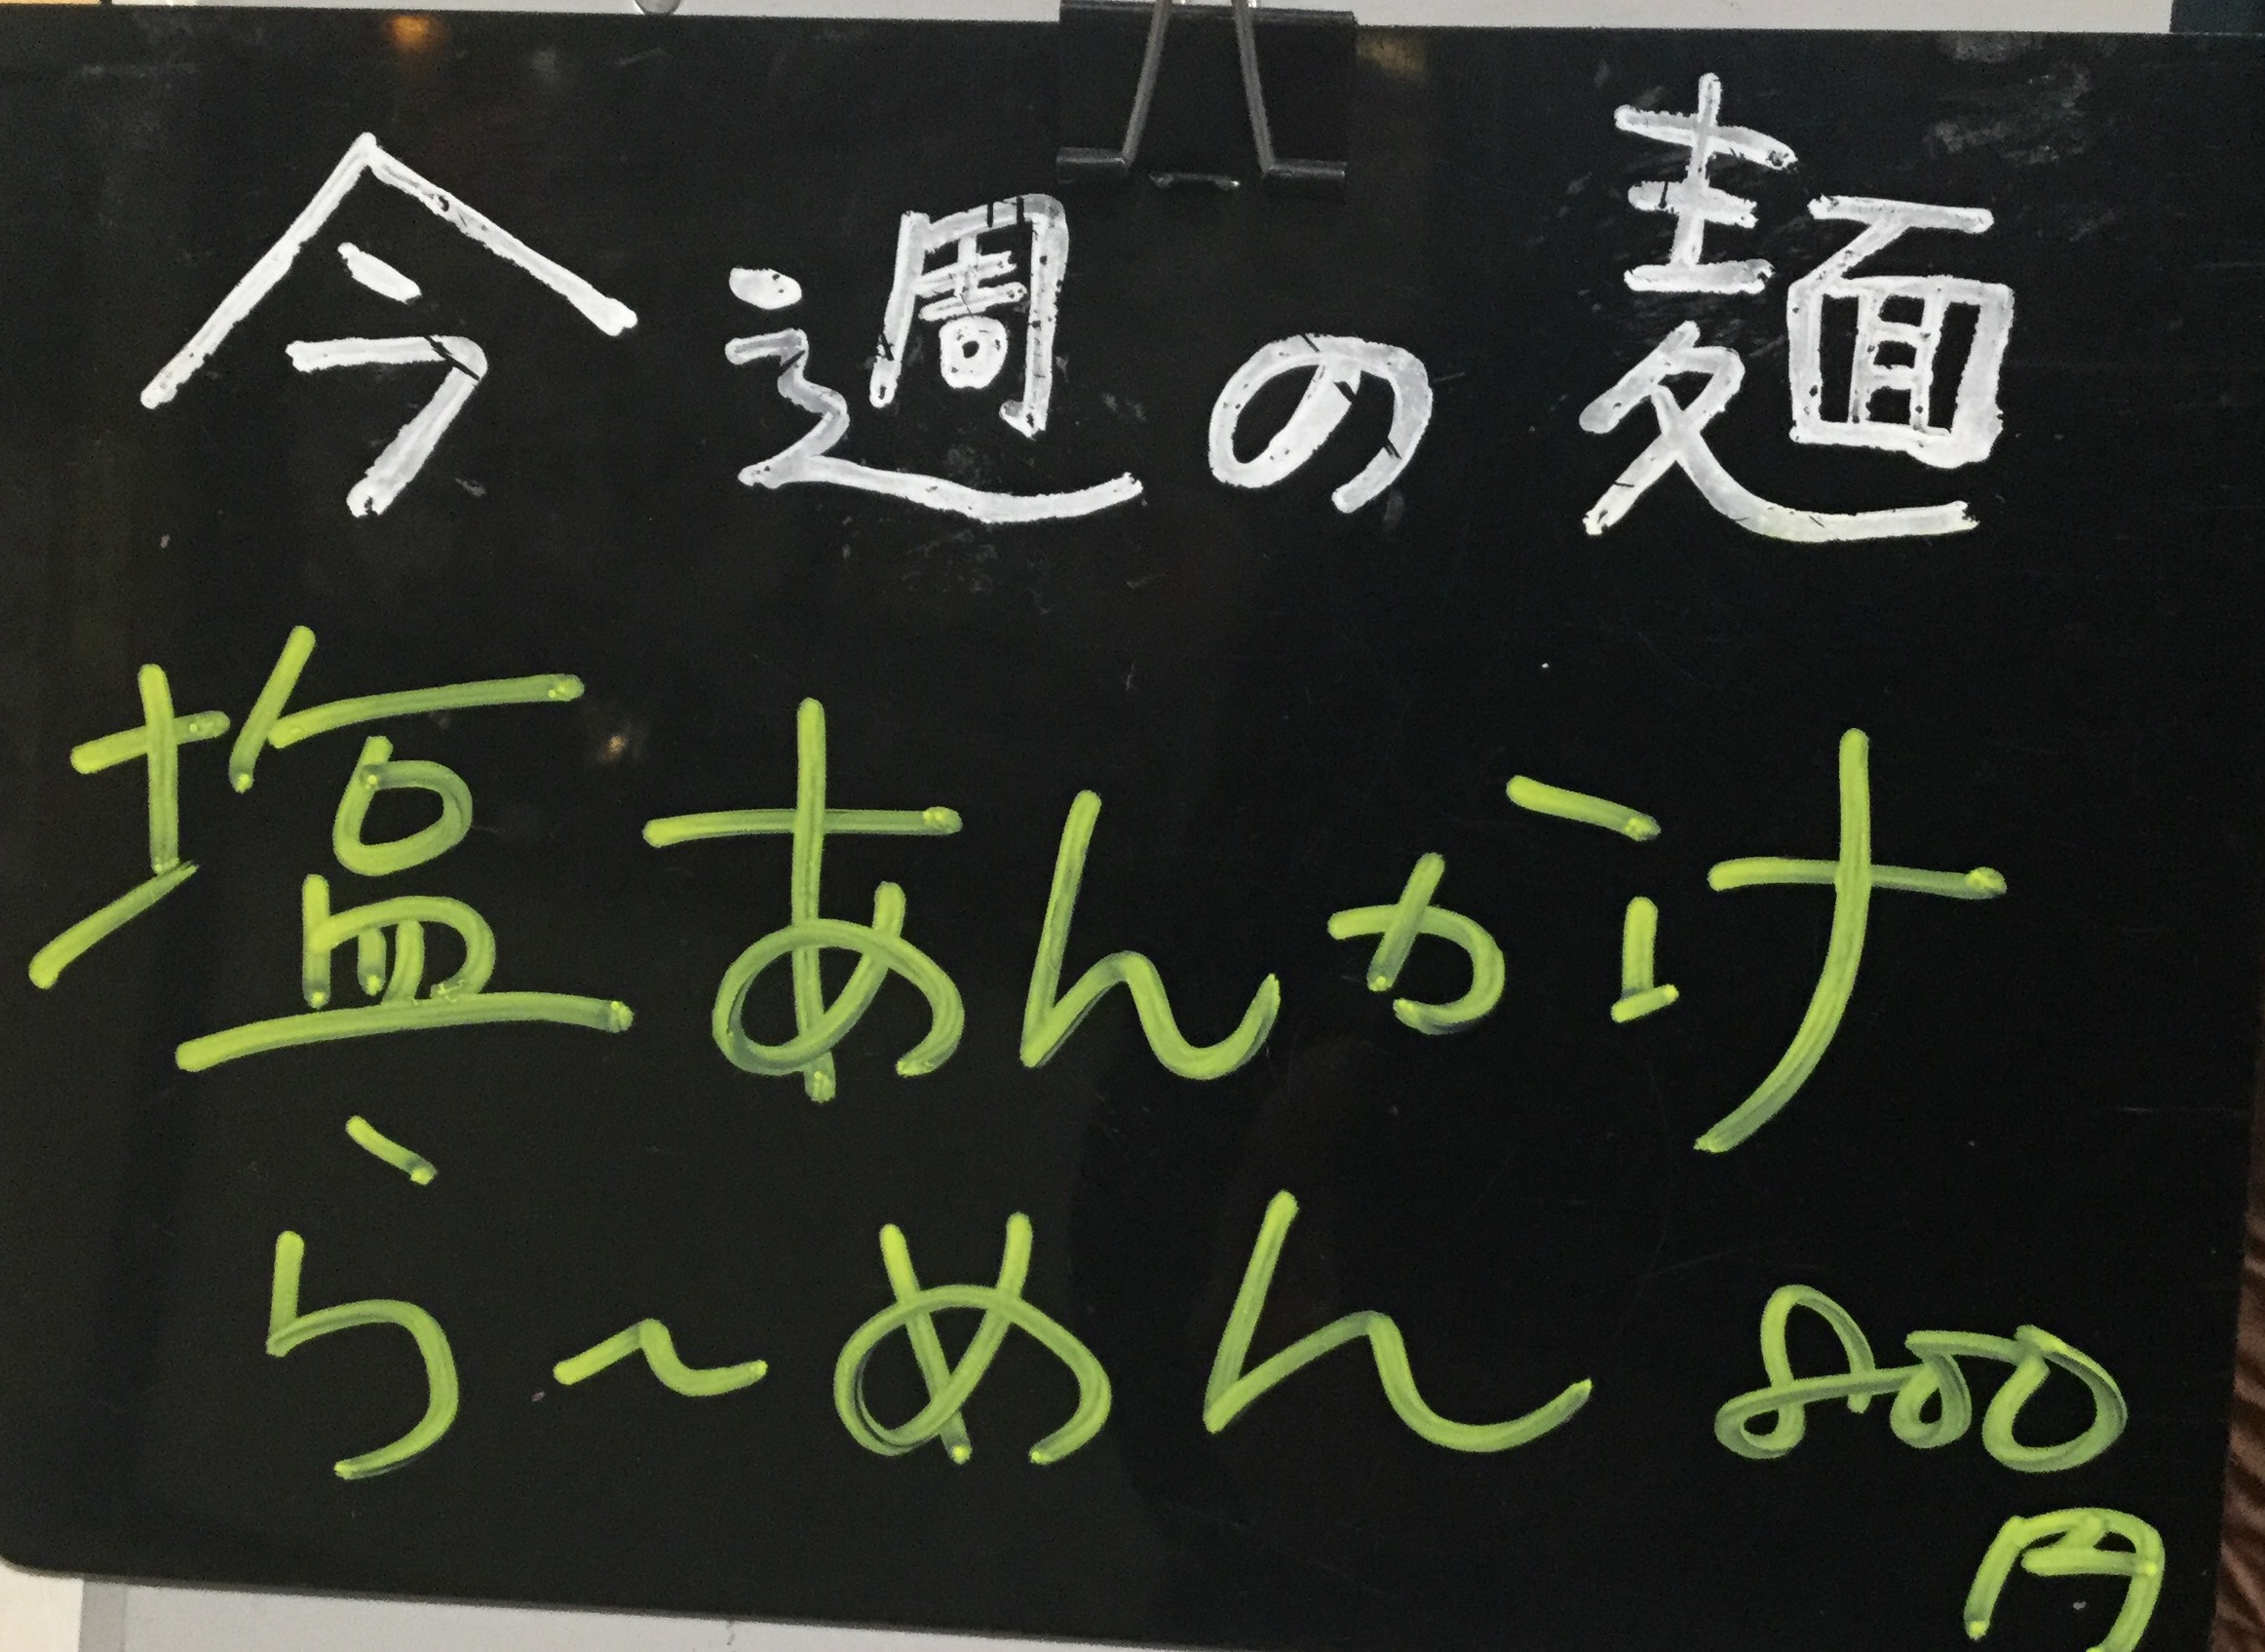 今週の麺
塩あんかけ
ら〜めん 800
円